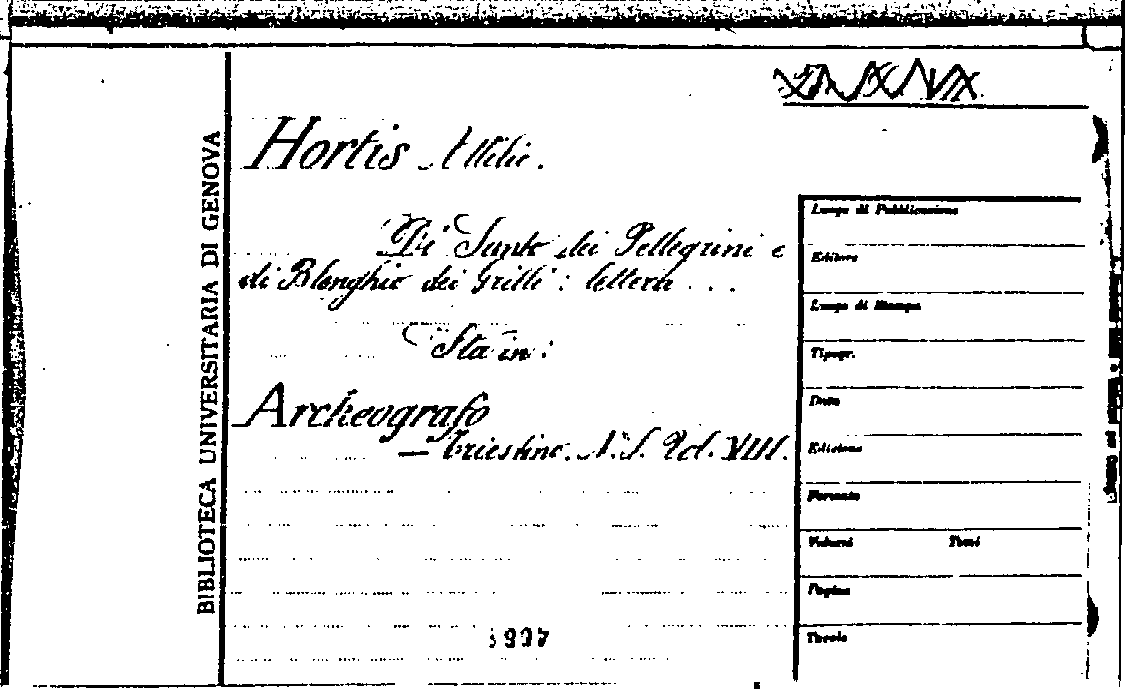 BIBLIOTECA UNIVERSITARIA DI GENOVA
Hortis Attilio.
Di Santo dei Pellegrini e
di Blenghio dei Grilli: lettera ...
Sta in:
Archeografo
— Triestino. N. S. Vol. VIII.
Luogo di Pubblicazione
Editore
Luogo di Stampa
Tipogr.
Data
Edizione
Formato
Volumi Tomi
Pagine
Tavole